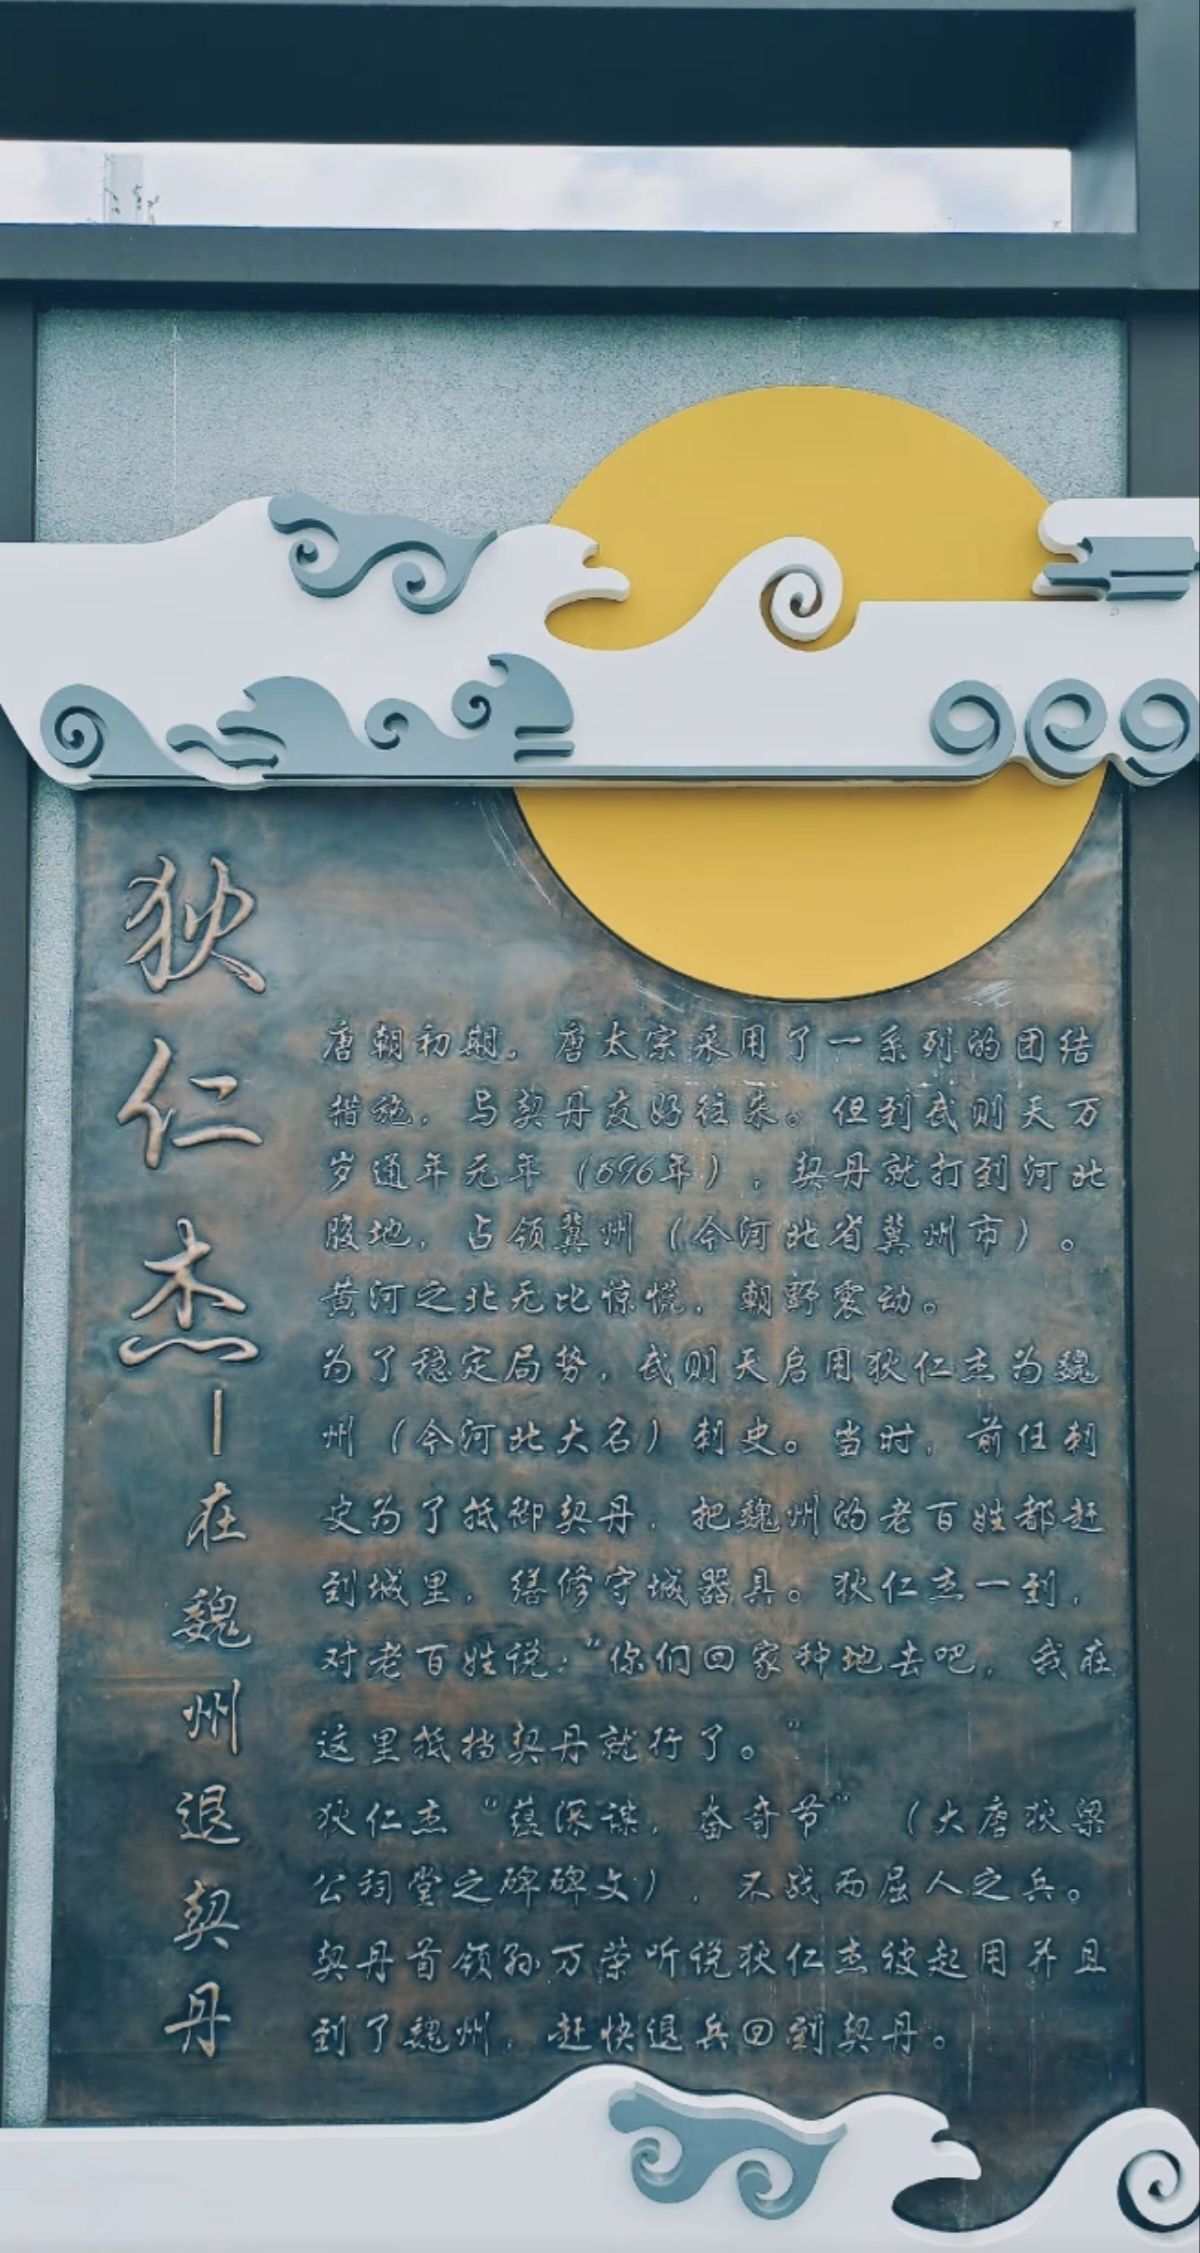 狄仁杰—在魏州退契丹
唐朝初期，唐太宗采用了一系列的团结
措施，与契丹友好往来。但到武则天万
岁通年元年（696年），契丹就打到河北
腹地，占领冀州（今河北省冀州市）。
黄河之北无比惊慌，朝野震动。
为了稳定局势，武则天启用狄仁杰为魏
州（今河北大名）刺史。当时，前任刺
史为了抵御契丹，把魏州的老百姓都赶
到城里，缮修守城器具。狄仁杰一到，
对老百姓说：“你们回家种地去吧，我在
这里抵挡契丹就行了。”
狄仁杰“蕴深谋，奋奇节”（大唐狄梁
公祠堂之碑碑文），不战而屈人之兵。
契丹首领孙万荣听说狄仁杰被起用并且
到了魏州，赶快退兵回到契丹。